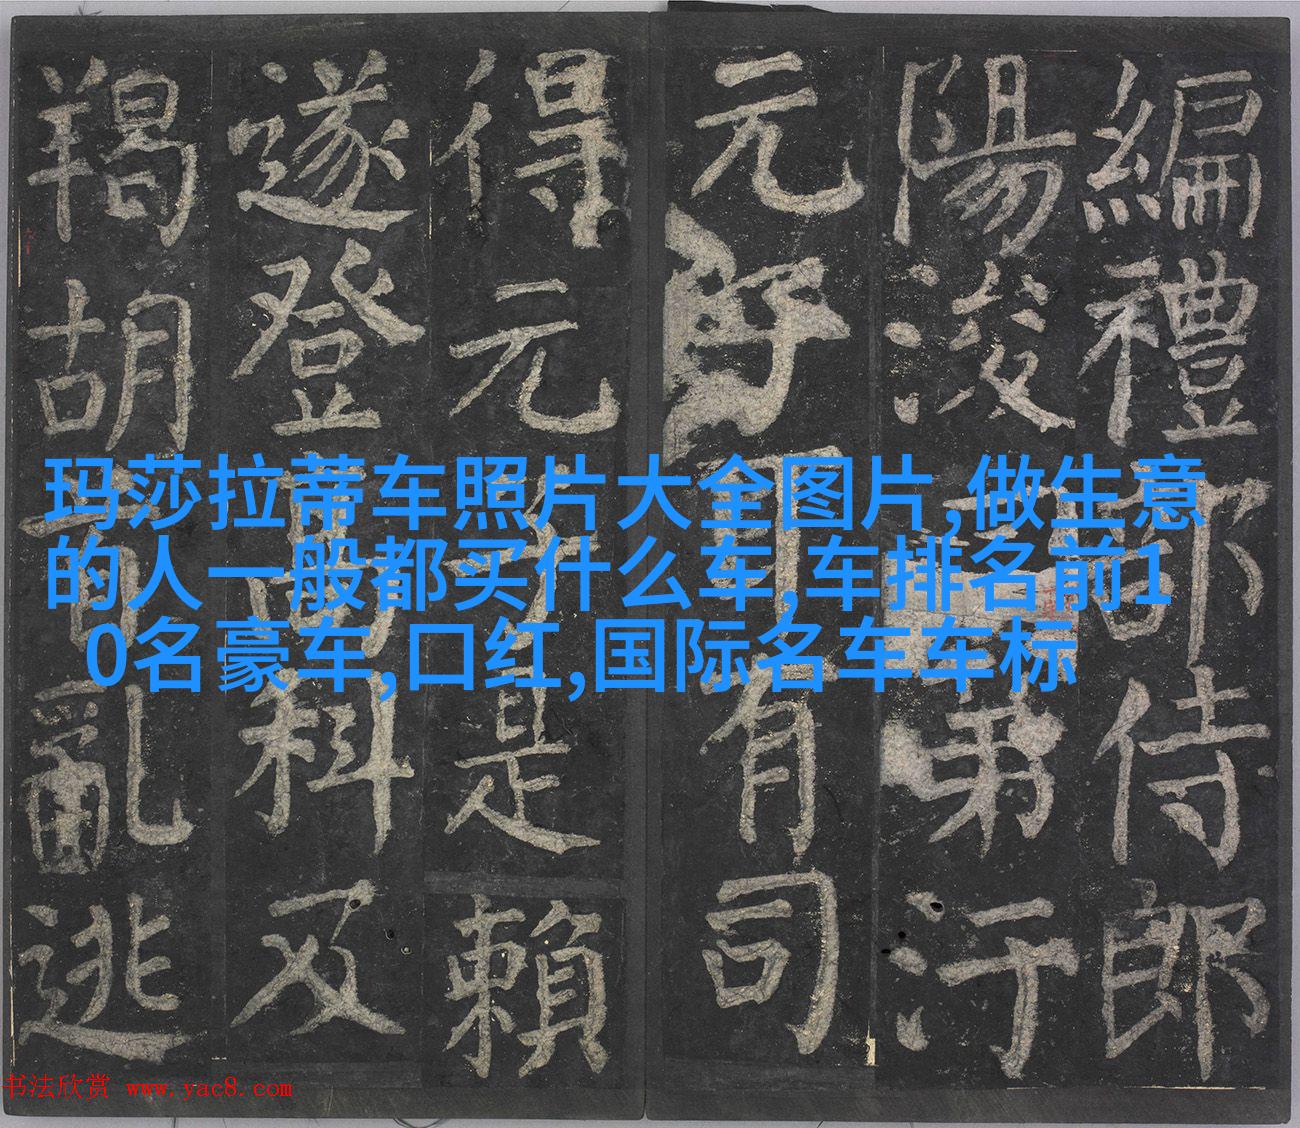 編禮部侍郎
陽浚弟汙
元子耳有司
得元子是賴
遂登高科及
羯胡首亂逃
玛莎拉蒂车照片大全图片,做生意
的人一般都买什么车,车排名前1
0名豪车,口红,国际名车车标
书法欣赏 www.yac8.com